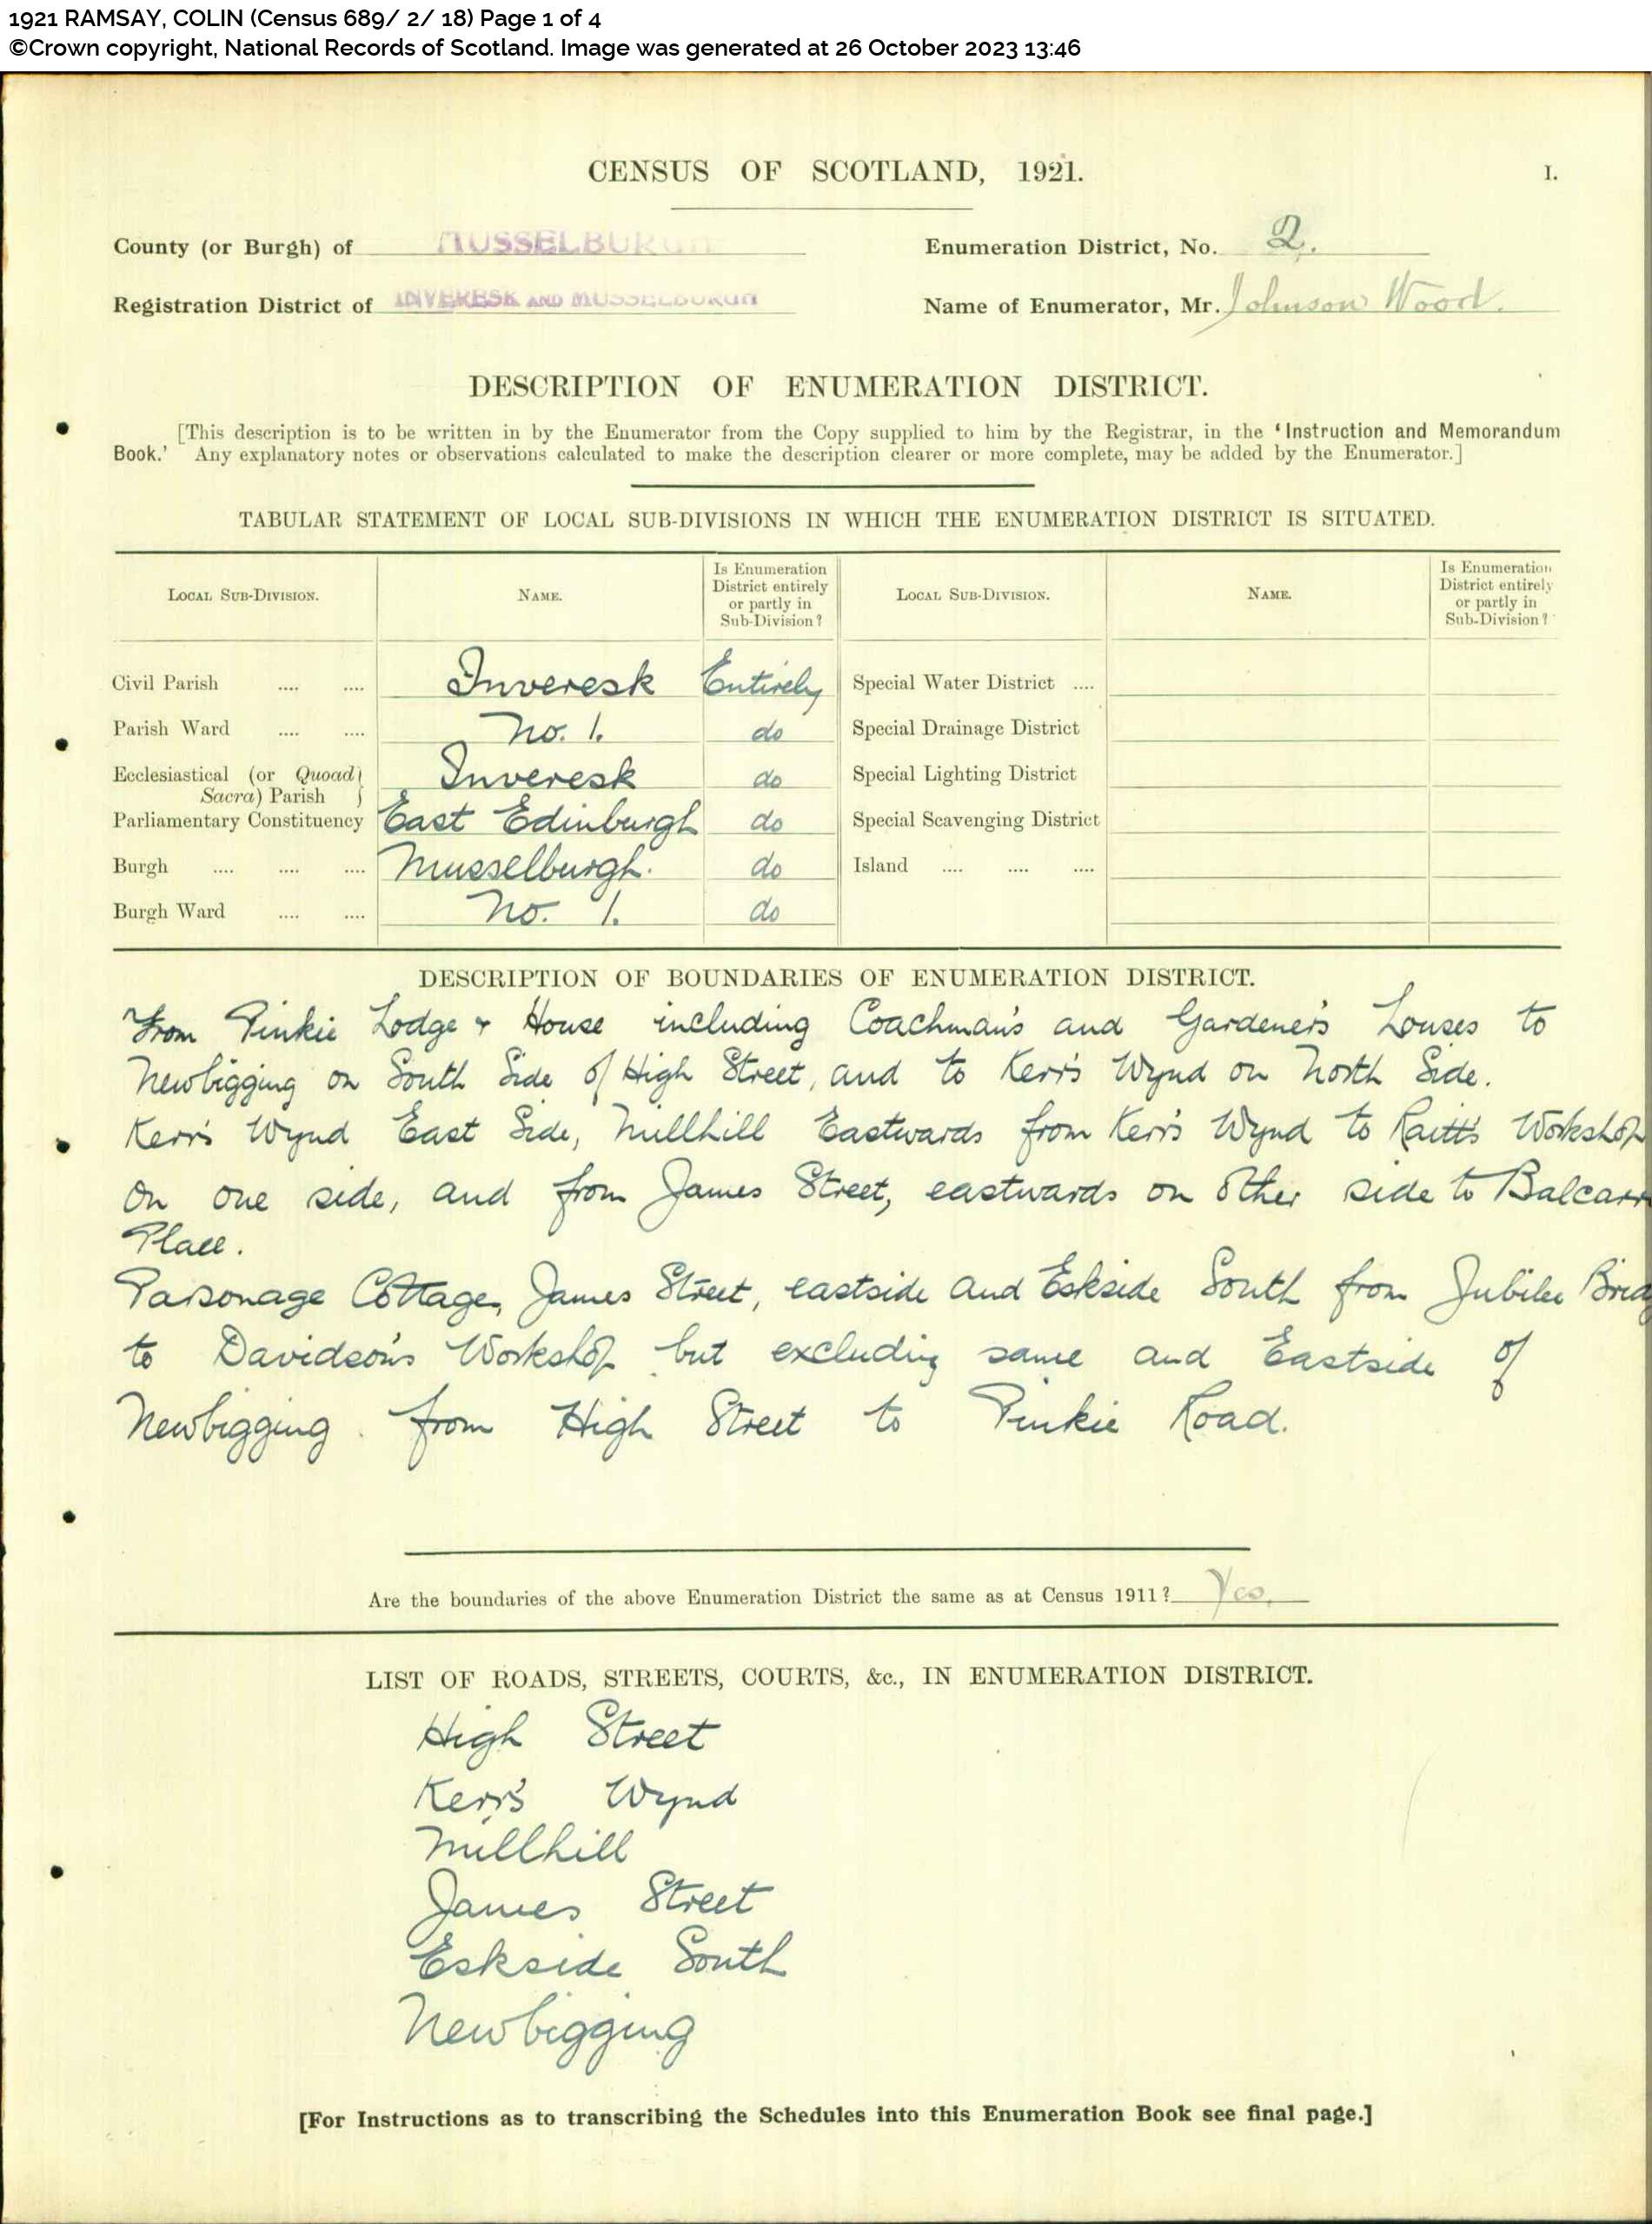 1921 RAMSAY, COLIN (Census 689/ 2/ 18) Page 1 of 4
©Crown copyright, National Records of Scotland. Image was generated at 26 October 2023 13:46
CENSUS OF SCOTLAND, 1921.
I.
County (or Burgh) of MUSSELBURGH
Enumeration District, No. 2.
Registration District of INVERESK AND MUSSELBURGH
Name of Enumerator, Mr. Johnson Wood.
DESCRIPTION OF ENUMERATION DISTRICT.
[This description is to be written in by the Enumerator from the Copy supplied to him by the Registrar, in the ‘Instruction and Memorandum
Book.’ Any explanatory notes or observations calculated to make the description clearer or more complete, may be added by the Enumerator.]
TABULAR STATEMENT OF LOCAL SUB-DIVISIONS IN WHICH THE ENUMERATION DISTRICT IS SITUATED.
LOCAL SUB-DIVISION.
NAME.
Is Enumeration
District entirely
or partly in
Sub-Division?
LOCAL SUB-DIVISION.
NAME.
Is Enumeration
District entirely
or partly in
Sub-Division?
Civil Parish .... .... Inveresk Entirely Special Water District ....
Parish Ward .... .... No. 1. do Special Drainage District
Ecclesiastical (or Quoad Inveresk do Special Lighting District
Sacra) Parish }
Parliamentary Constituency East Edinburgh do Special Scavenging District
Burgh .... .... .... Musselburgh. do Island .... .... ....
Burgh Ward .... .... No. 1. do
DESCRIPTION OF BOUNDARIES OF ENUMERATION DISTRICT.
From Pinkie Lodge & House including Coachman's and Gardener's Houses to
Newbigging on South Side of High Street, and to Kerr's Wynd on North Side.
Kerr's Wynd East Side, Millhill Eastwards from Kerr's Wynd to Raitt's Workshop
on one side, and from James Street, eastwards on other side to Balcarr
Place.
Parsonage Cottage, James Street, eastside and Eskside South from Jubilee Brid
to Davidson's Workshop but excluding same and Eastside of
Newbigging from High Street to Pinkie Road.
Are the boundaries of the above Enumeration District the same as at Census 1911? Yes.
LIST OF ROADS, STREETS, COURTS, &c., IN ENUMERATION DISTRICT.
High Street
Kerr's Wynd
Millhill
James Street
Eskside South
Newbigging
[For Instructions as to transcribing the Schedules into this Enumeration Book see final page.]